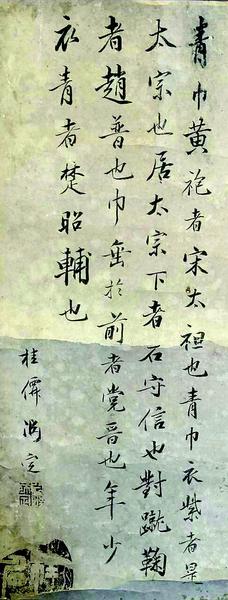 青巾黃袍者宋太祖也青巾衣紫者是
太宗也居太宗下者石守信也對蹴鞠
者趙普也巾垂於前者党晉也年少
衣青者楚昭輔也